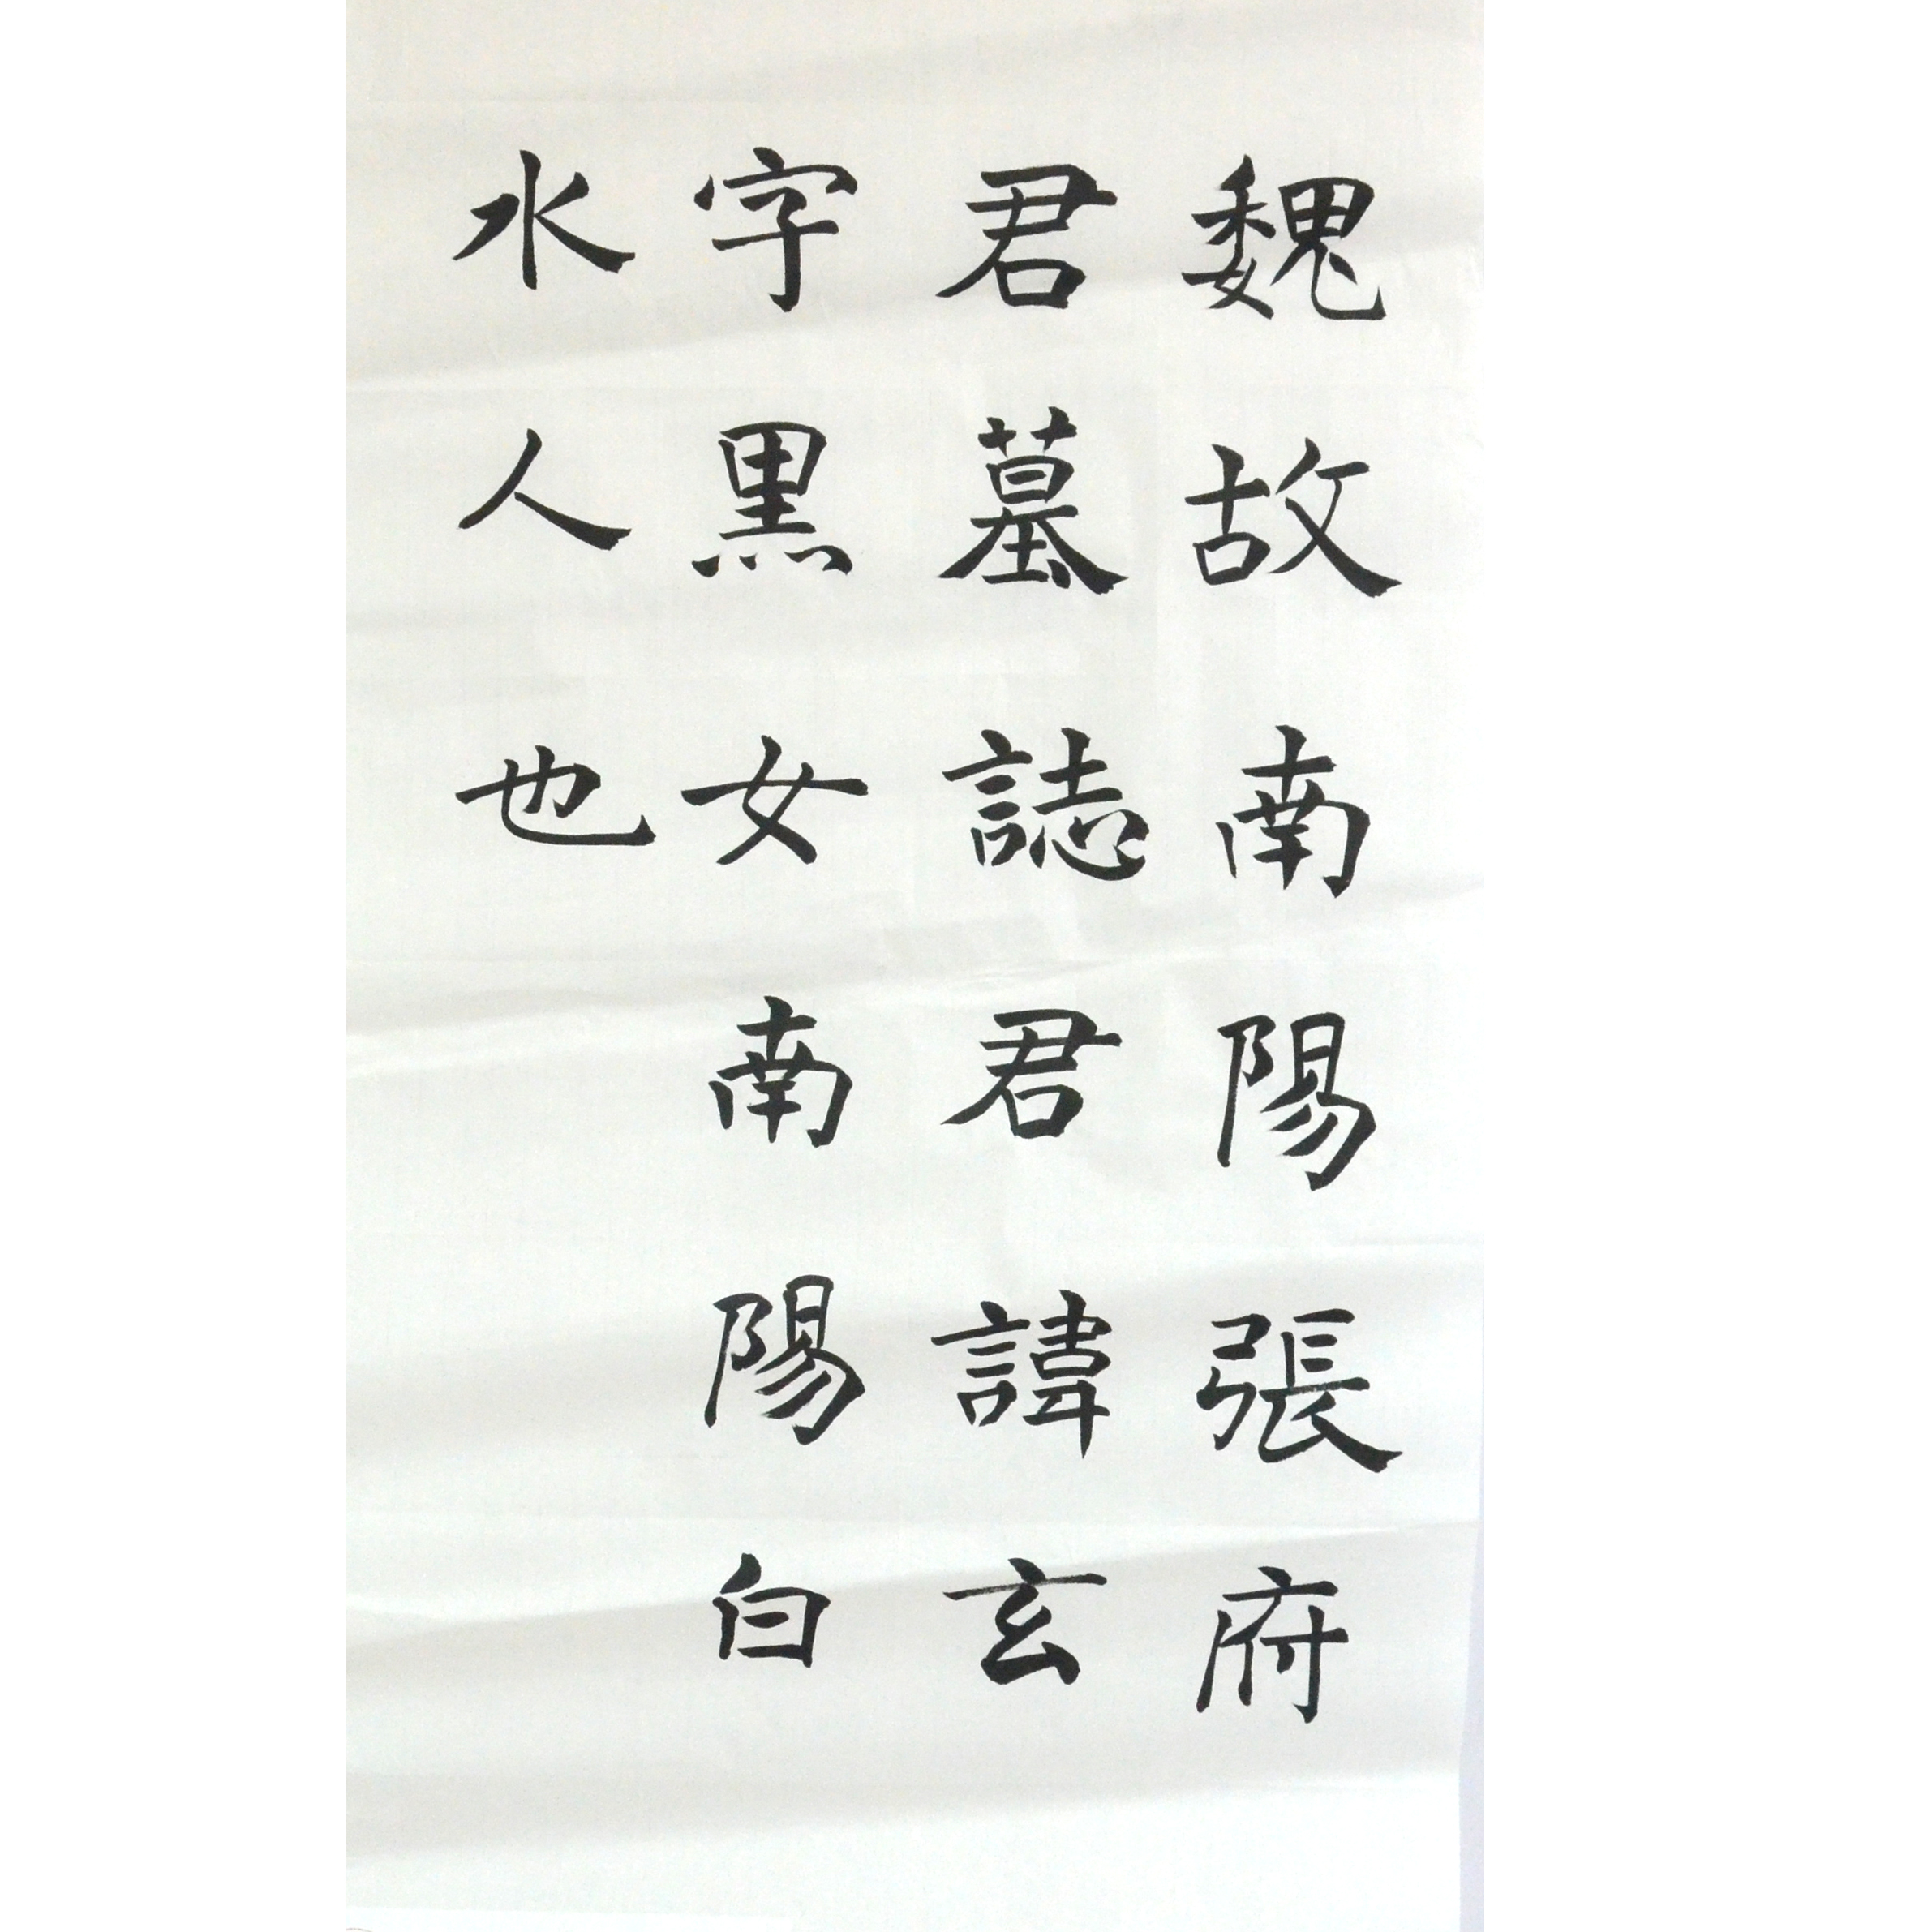 魏故南陽張府
君墓誌君諱玄
字黑女南陽白
水人也